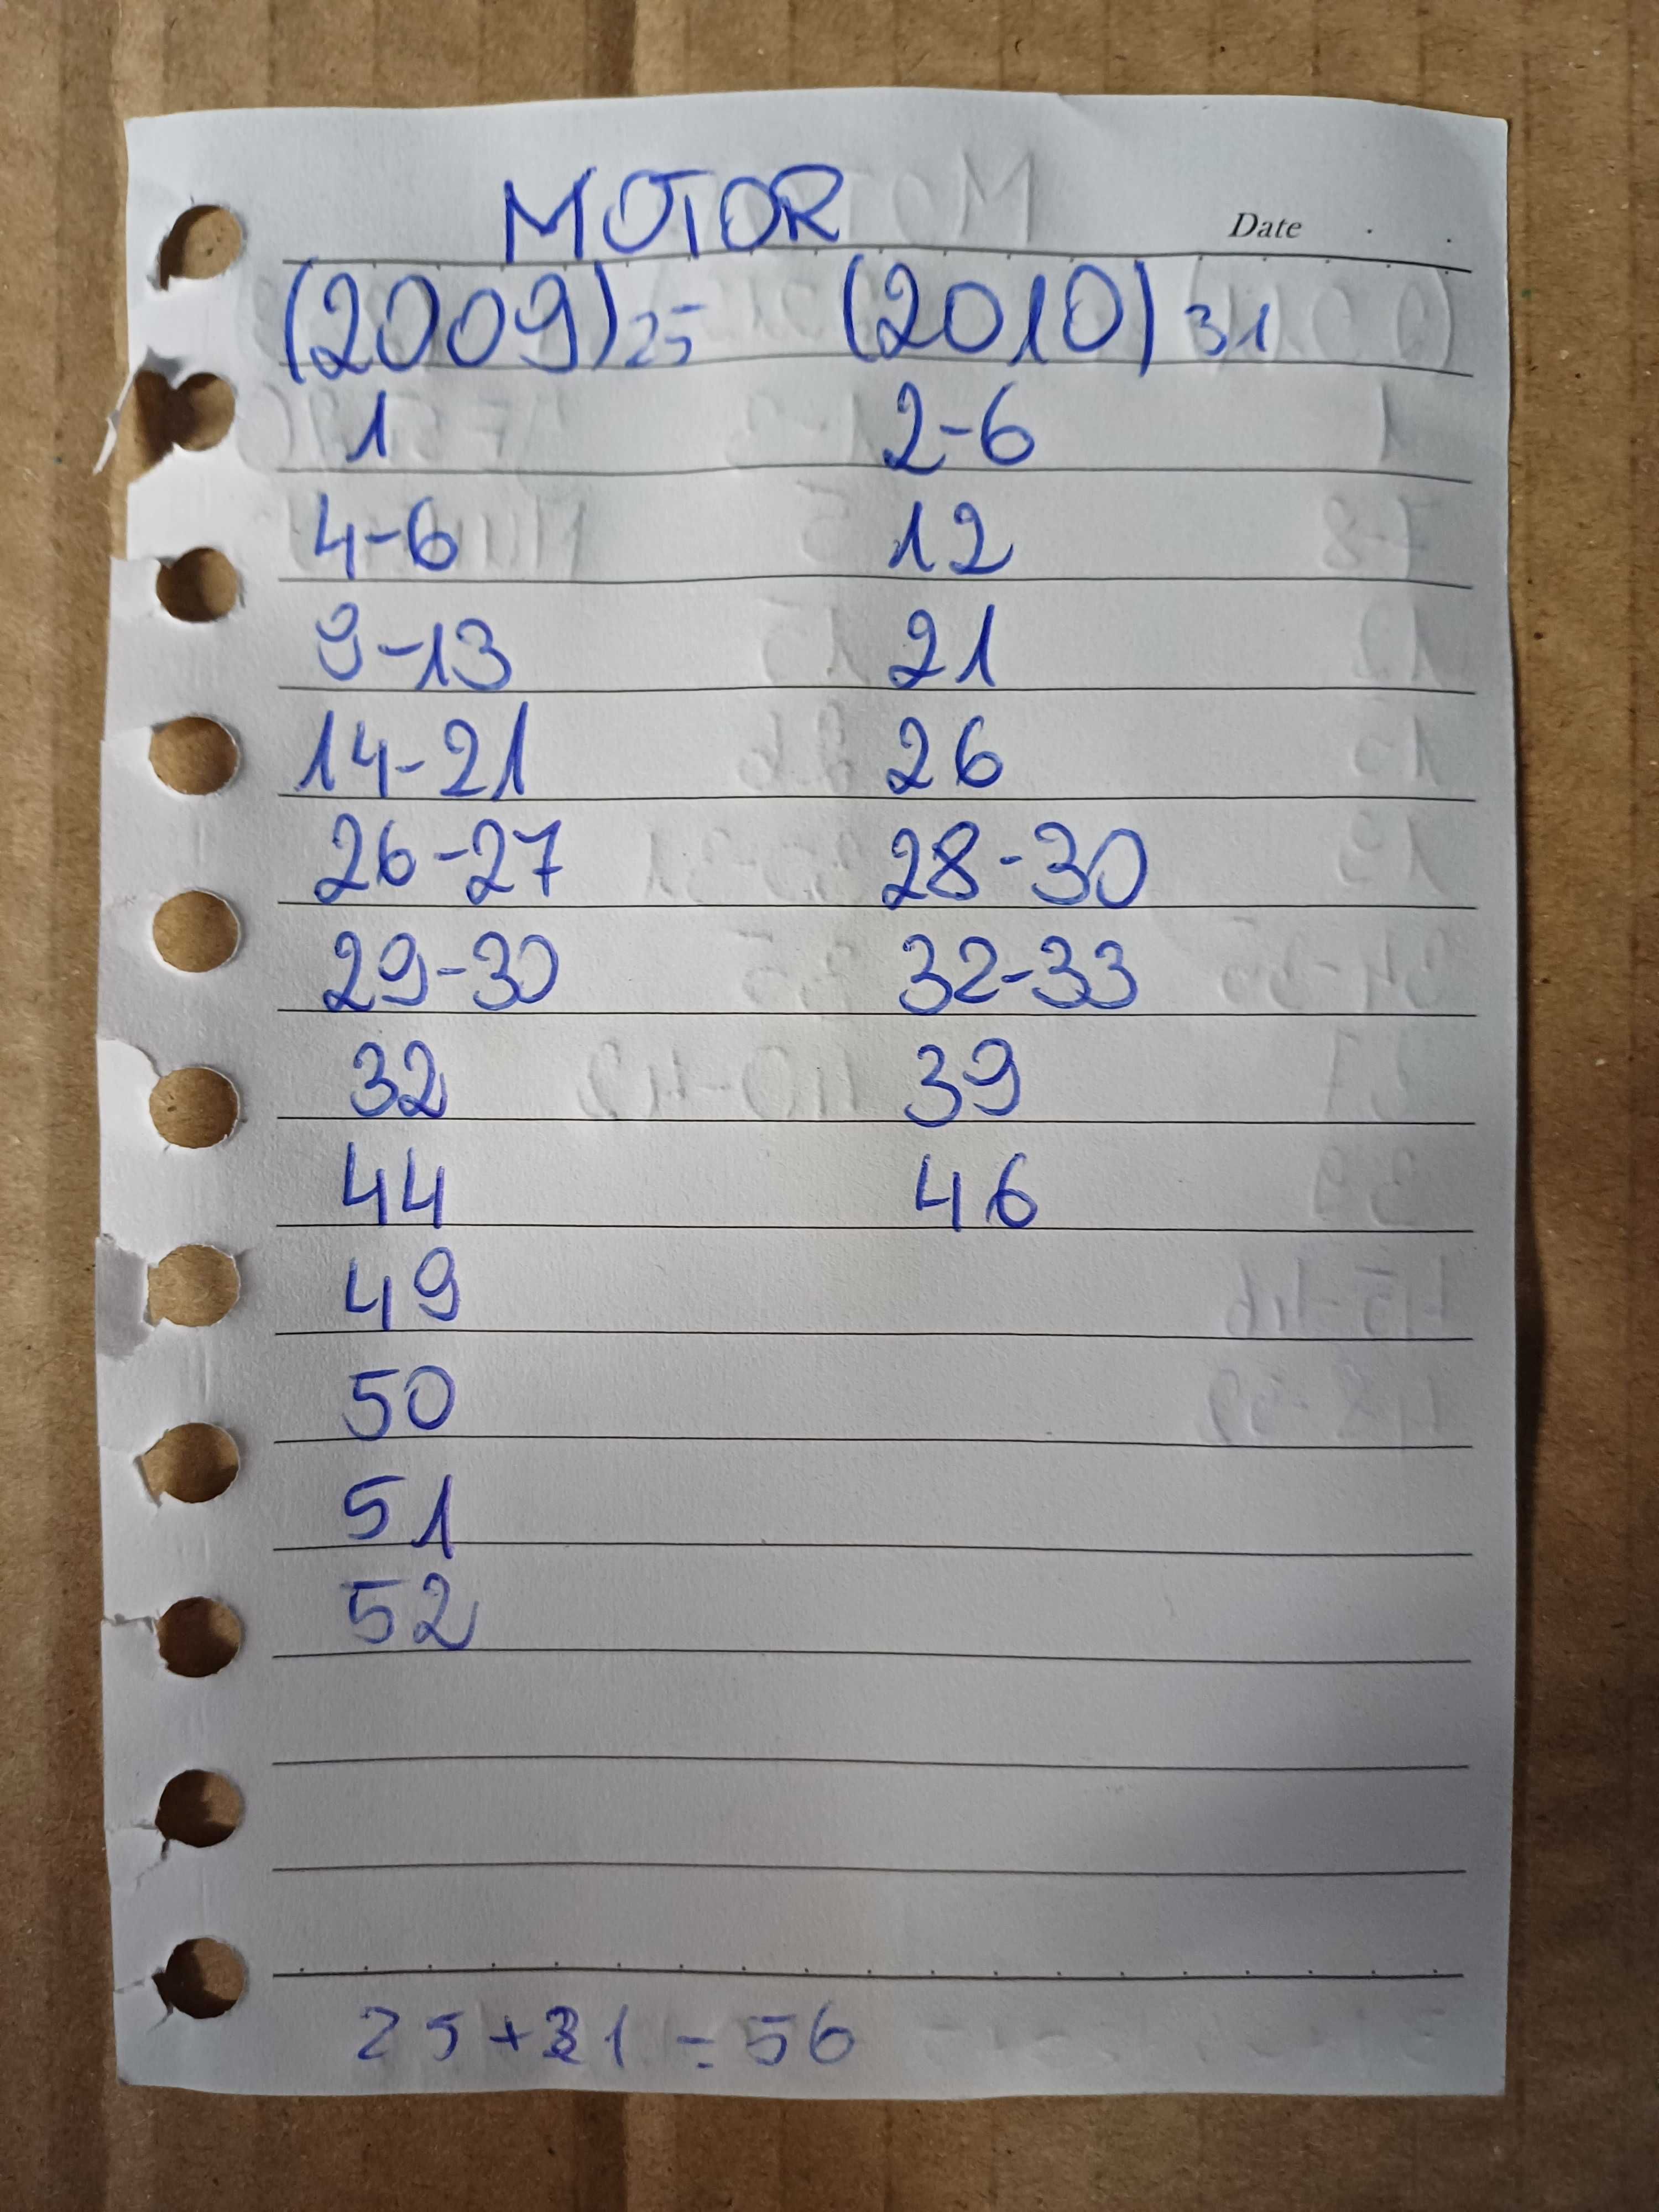 MOTOR
Date
(2009) 25 (2010) 31
1 2-6
4-6 12
9-13 21
14-21 26
26-27 28-30
29-30 32-33
32 39
44 46
49
50
51
52
25+31=56